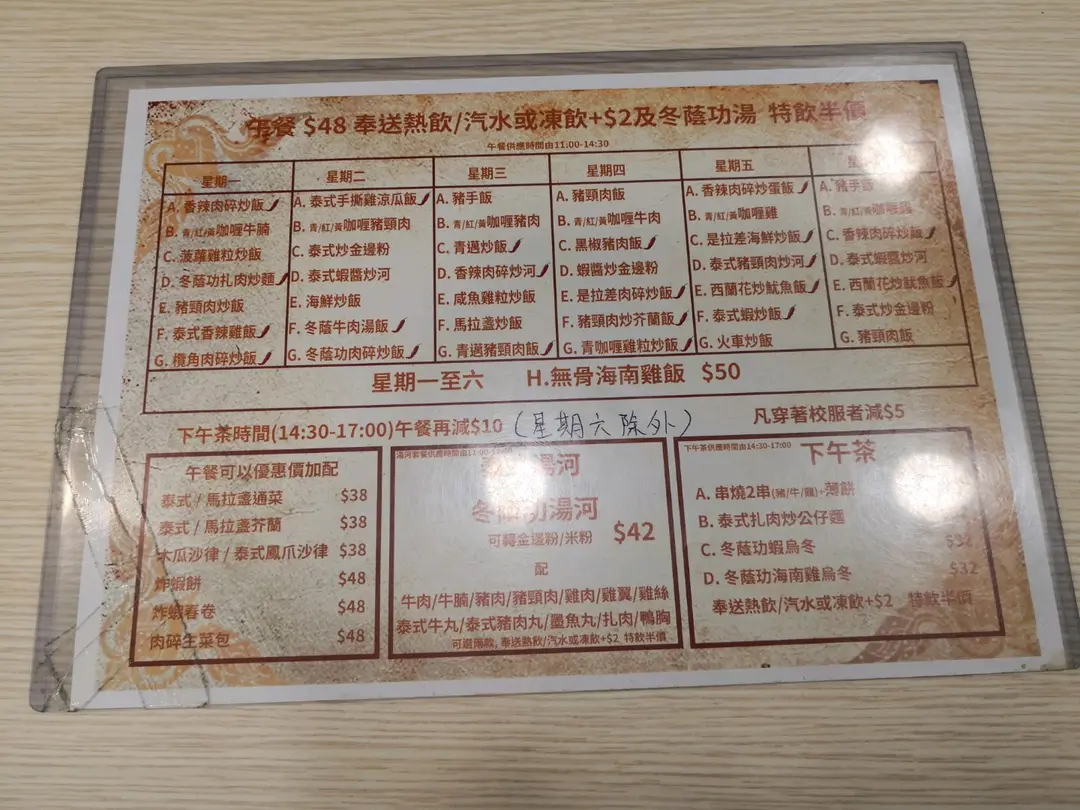 午餐 $48 奉送熱飲/汽水或凍飲+$2及冬蔭功湯 特飲半價
午餐供應時間由11:00-14:30
星期一
A. 香辣肉碎炒飯
B. 青/紅/黃咖喱牛腩
C. 菠蘿雞粒炒飯
D. 冬蔭功扎肉炒麵
E. 豬頸肉炒飯
F. 泰式香辣雞飯
G. 欖角肉碎炒飯
星期二
A. 泰式手撕雞涼瓜飯
B. 青/紅/黃咖喱豬頸肉
C. 泰式炒金邊粉
D. 泰式蝦醬炒河
E. 海鮮炒飯
F. 冬蔭牛肉湯飯
G. 冬蔭功肉碎炒飯
星期三
A. 豬手飯
B. 青/紅/黃咖喱豬肉
C. 青邁炒飯
D. 香辣肉碎炒河
E. 咸魚雞粒炒飯
F. 馬拉盞炒飯
G. 青邁豬頸肉飯
星期四
A. 豬頸肉飯
B. 青/紅/黃咖喱牛肉
C. 黑椒豬肉飯
D. 蝦醬炒金邊粉
E. 是拉差肉碎炒飯
F. 豬頸肉炒芥蘭飯
G. 青咖喱雞粒炒飯
星期五
A. 香辣肉碎炒蛋飯
B. 青/紅/黃咖喱雞
C. 是拉差海鮮炒飯
D. 泰式豬頸肉炒河
E. 西蘭花炒魷魚飯
F. 泰式蝦炒飯
G. 火車炒飯
A. 豬手飯
B. 青/紅/黃咖喱
C. 香辣肉碎炒飯
D. 泰式蝦醬炒河
E. 西蘭花炒魷魚飯
F. 泰式炒金邊粉
G. 豬頸肉飯
星期一至六 H.無骨海南雞飯 $50
下午茶時間(14:30-17:00)午餐再減$10 (星期六除外)
凡穿著校服者減$5
午餐可以優惠價加配
泰式/馬拉盞通菜 $38
泰式/馬拉盞芥蘭 $38
木瓜沙律/泰式鳳爪沙律 $38
炸蝦餅 $48
炸蝦春卷 $48
肉碎生菜包 $48
湯河套餐供應時間由11:00-
湯河
冬蔭功湯河
可轉金邊粉/米粉 $42
配
牛肉/牛腩/豬肉/豬頸肉/雞肉/雞翼/雞絲
泰式牛丸/泰式豬肉丸/墨魚丸/扎肉/鴨胸
可選兩款, 奉送熱飲/汽水或凍飲+$2 特飲半價
下午茶供應時間由14:30-17:00
下午茶
A. 串燒2串(豬/牛/雞)+薄餅
B. 泰式扎肉炒公仔麵
C. 冬蔭功蝦烏冬
D. 冬蔭功海南雞烏冬 $32
奉送熱飲/汽水或凍飲+$2 特飲半價